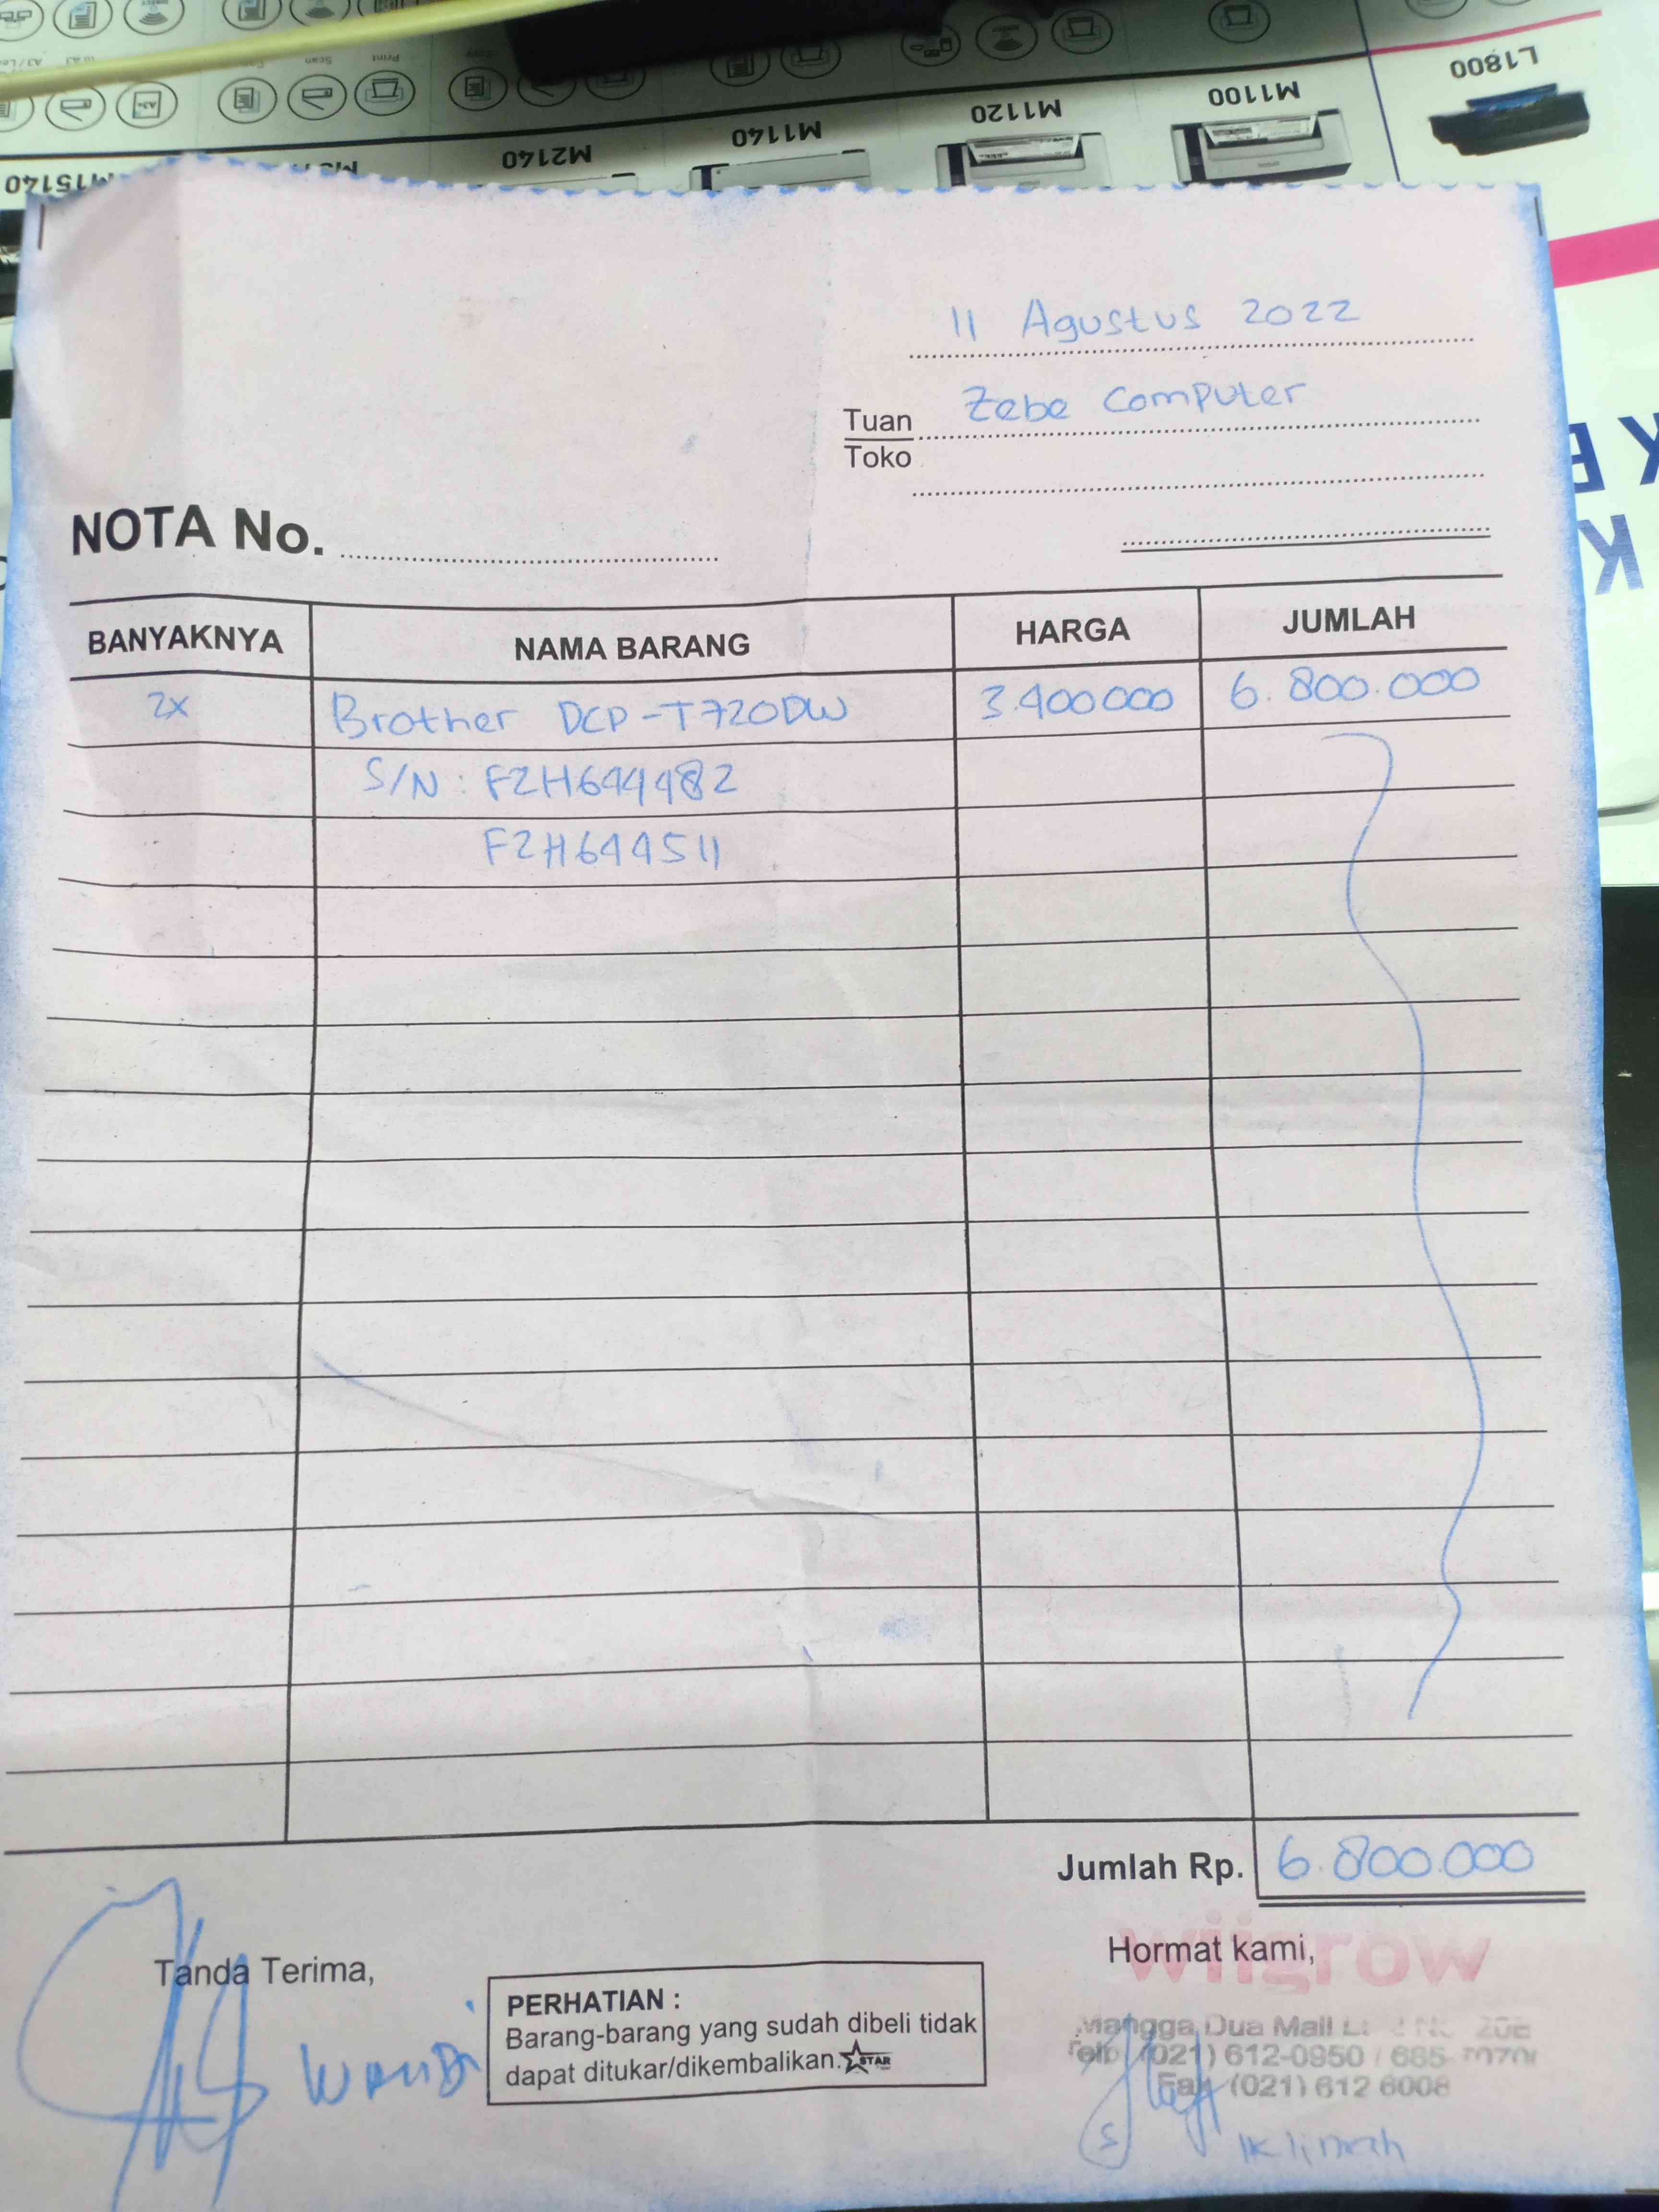 L1800
M1100
M1120
M1140
M2140
M15140
11 Agustus 2022
Tuan Zebe Computer
Toko
NOTA No.
BANYAKNYA NAMA BARANG HARGA JUMLAH
2x Brother DCP-T720DW 3.400000 6.800.000
S/N : F2H644482
F2H644511
Jumlah Rp. 6.800.000
Tanda Terima, Hormat kami,
wiigrow
PERHATIAN :
Barang-barang yang sudah dibeli tidak
dapat ditukar/dikembalikan. STAR
Mangga Dua Mall
Telp. (021) 612-0950 /
Fax. (021) 612 6008